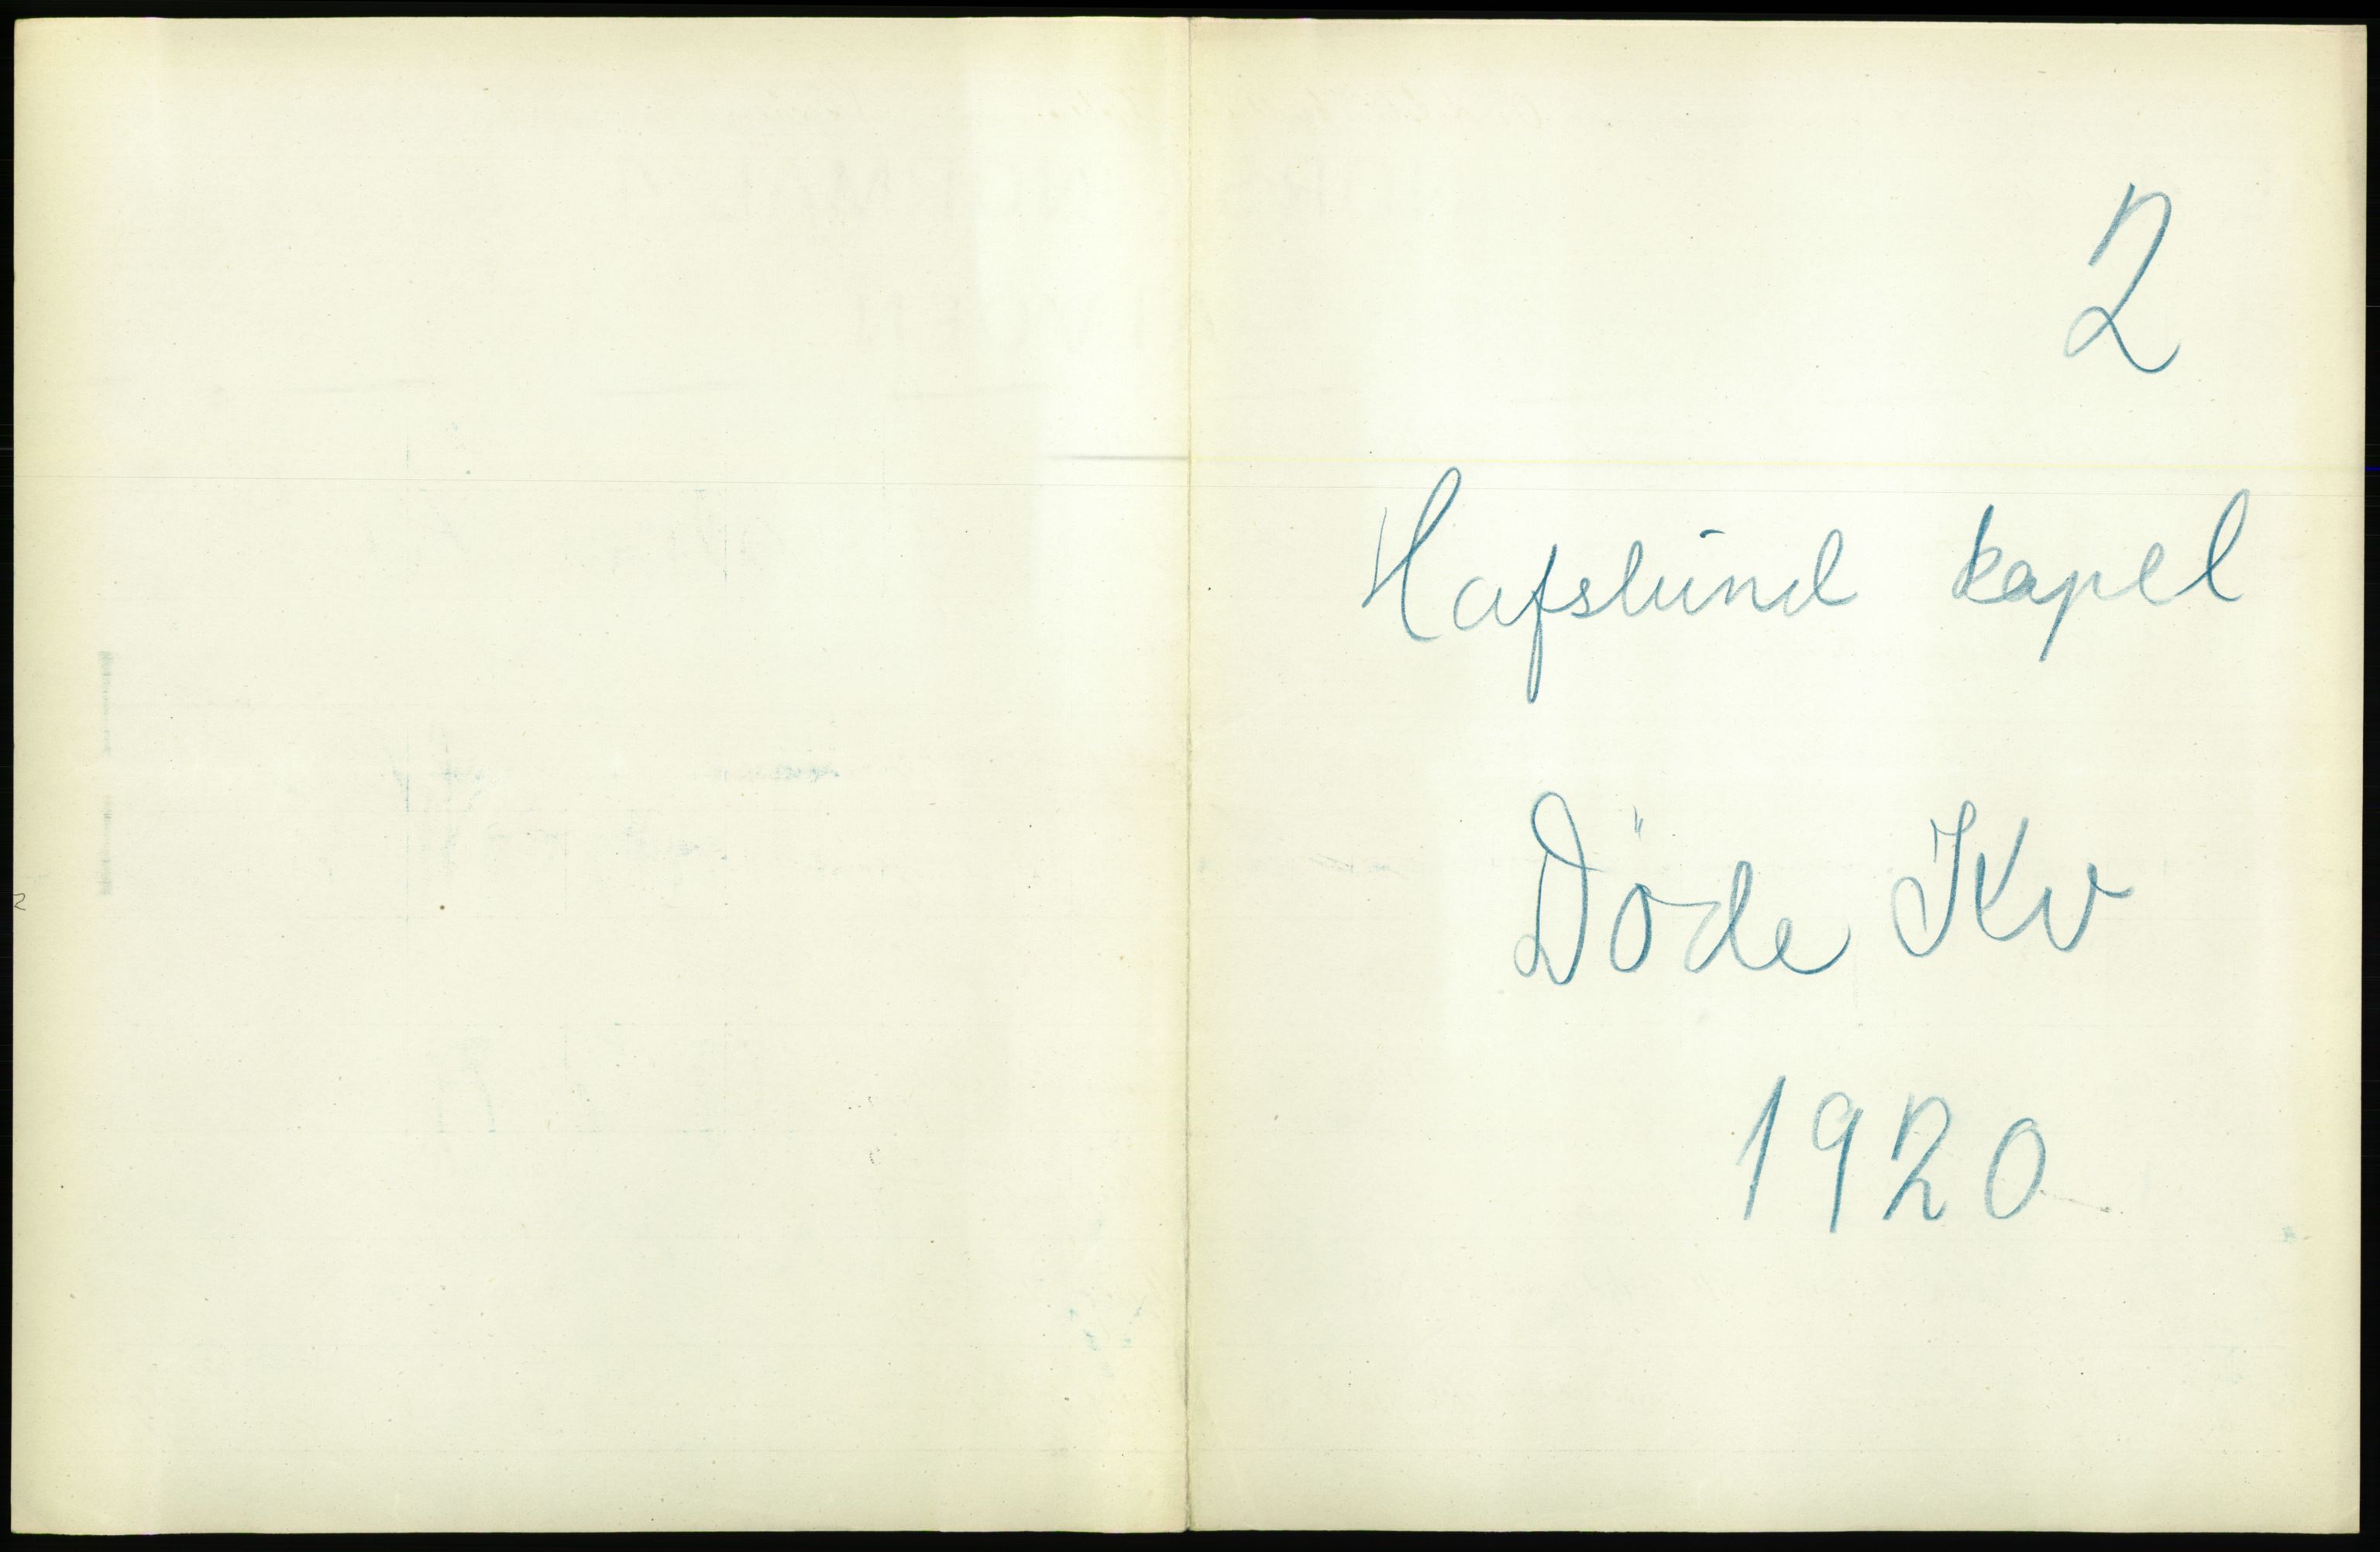 2
Hafslund kapel
Döde Kv
1920